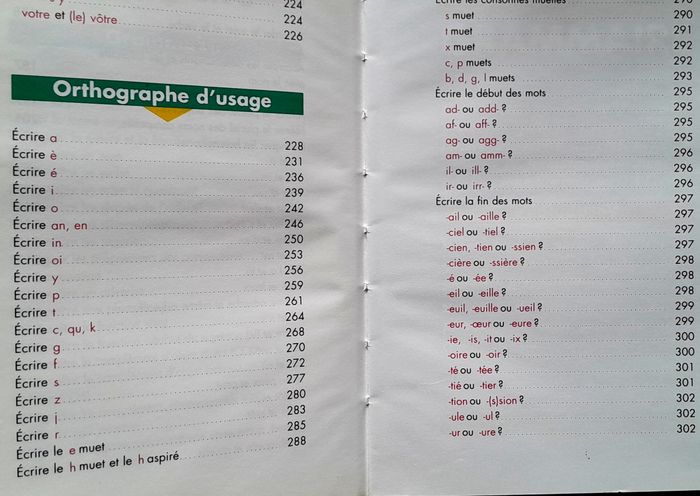 224
224
votre et (le) vôtre 226
Orthographe d'usage
Écrire a 228
Écrire è 231
Écrire é 236
Écrire i 239
Écrire o 242
Écrire an, en 246
Écrire in 250
Écrire oi 253
Écrire y 256
Écrire p 259
Écrire t 261
Écrire c, qu, k 264
Écrire g 268
Écrire f 270
Écrire s 272
Écrire z 277
Écrire j 280
Écrire r 283
Écrire le e muet 285
Écrire le h muet et le h aspiré 288
Écrire les consonnes muettes 290
s muet 290
t muet 291
x muet 292
c, p muets 292
b, d, g, l muets 293
Écrire le début des mots 295
ad- ou add- ? 295
af- ou aff- ? 295
ag- ou agg- ? 295
am- ou amm- ? 296
il- ou ill- ? 296
ir- ou irr- ? 296
Écrire la fin des mots 297
-ail ou -aille ? 297
-ciel ou -tiel ? 297
-cien, -tien ou -ssien ? 297
-cière ou -ssière ? 298
-é ou -ée ? 298
-eil ou -eille ? 298
-euil, -euille ou -ueil ? 299
-eur, -œur ou -eure ? 299
-ie, -is, -it ou -ix ? 300
-oire ou -oir ? 300
-té ou -tée ? 301
-tié ou -tier ? 301
-tion ou -(s)sion ? 302
-ule ou -ul ? 302
-ur ou -ure ? 302